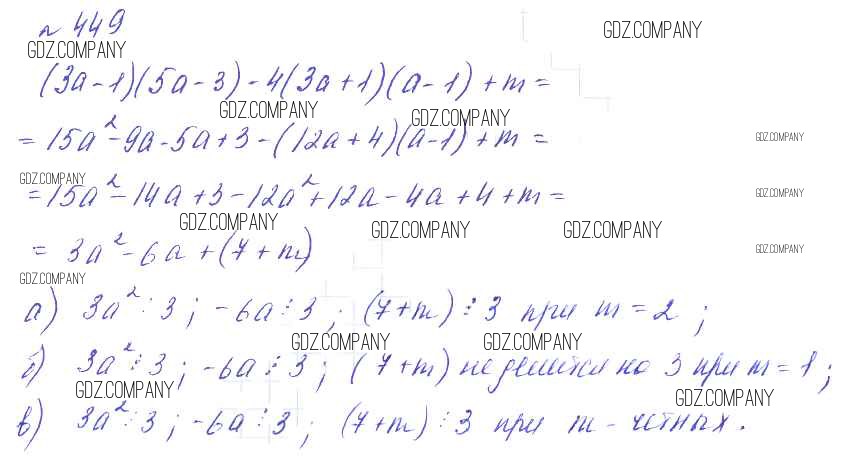 № 449
GDZ.COMPANY
GDZ.COMPANY
(3a-1)(5a-3)-4(3a+1)(a-1)+m=
GDZ.COMPANY
GDZ.COMPANY
=15a²-9a-5a+3-(12a+4)(a-1)+m=
GDZ.COMPANY
GDZ.COMPANY
=15a²-14a+3-12a²+12a-4a+4+m=
GDZ.COMPANY
GDZ.COMPANY
GDZ.COMPANY
GDZ.COMPANY
=3a²-6a+(7+m)
GDZ.COMPANY
GDZ.COMPANY
а) 3a²⋮3; -6a⋮3; (7+m)⋮3 при m=2;
GDZ.COMPANY
GDZ.COMPANY
б) 3a²⋮3; -6a⋮3; (7+m) не делится на 3 при m=1;
GDZ.COMPANY
GDZ.COMPANY
в) 3a²⋮3; -6a⋮3; (7+m)⋮3 при m-четных.